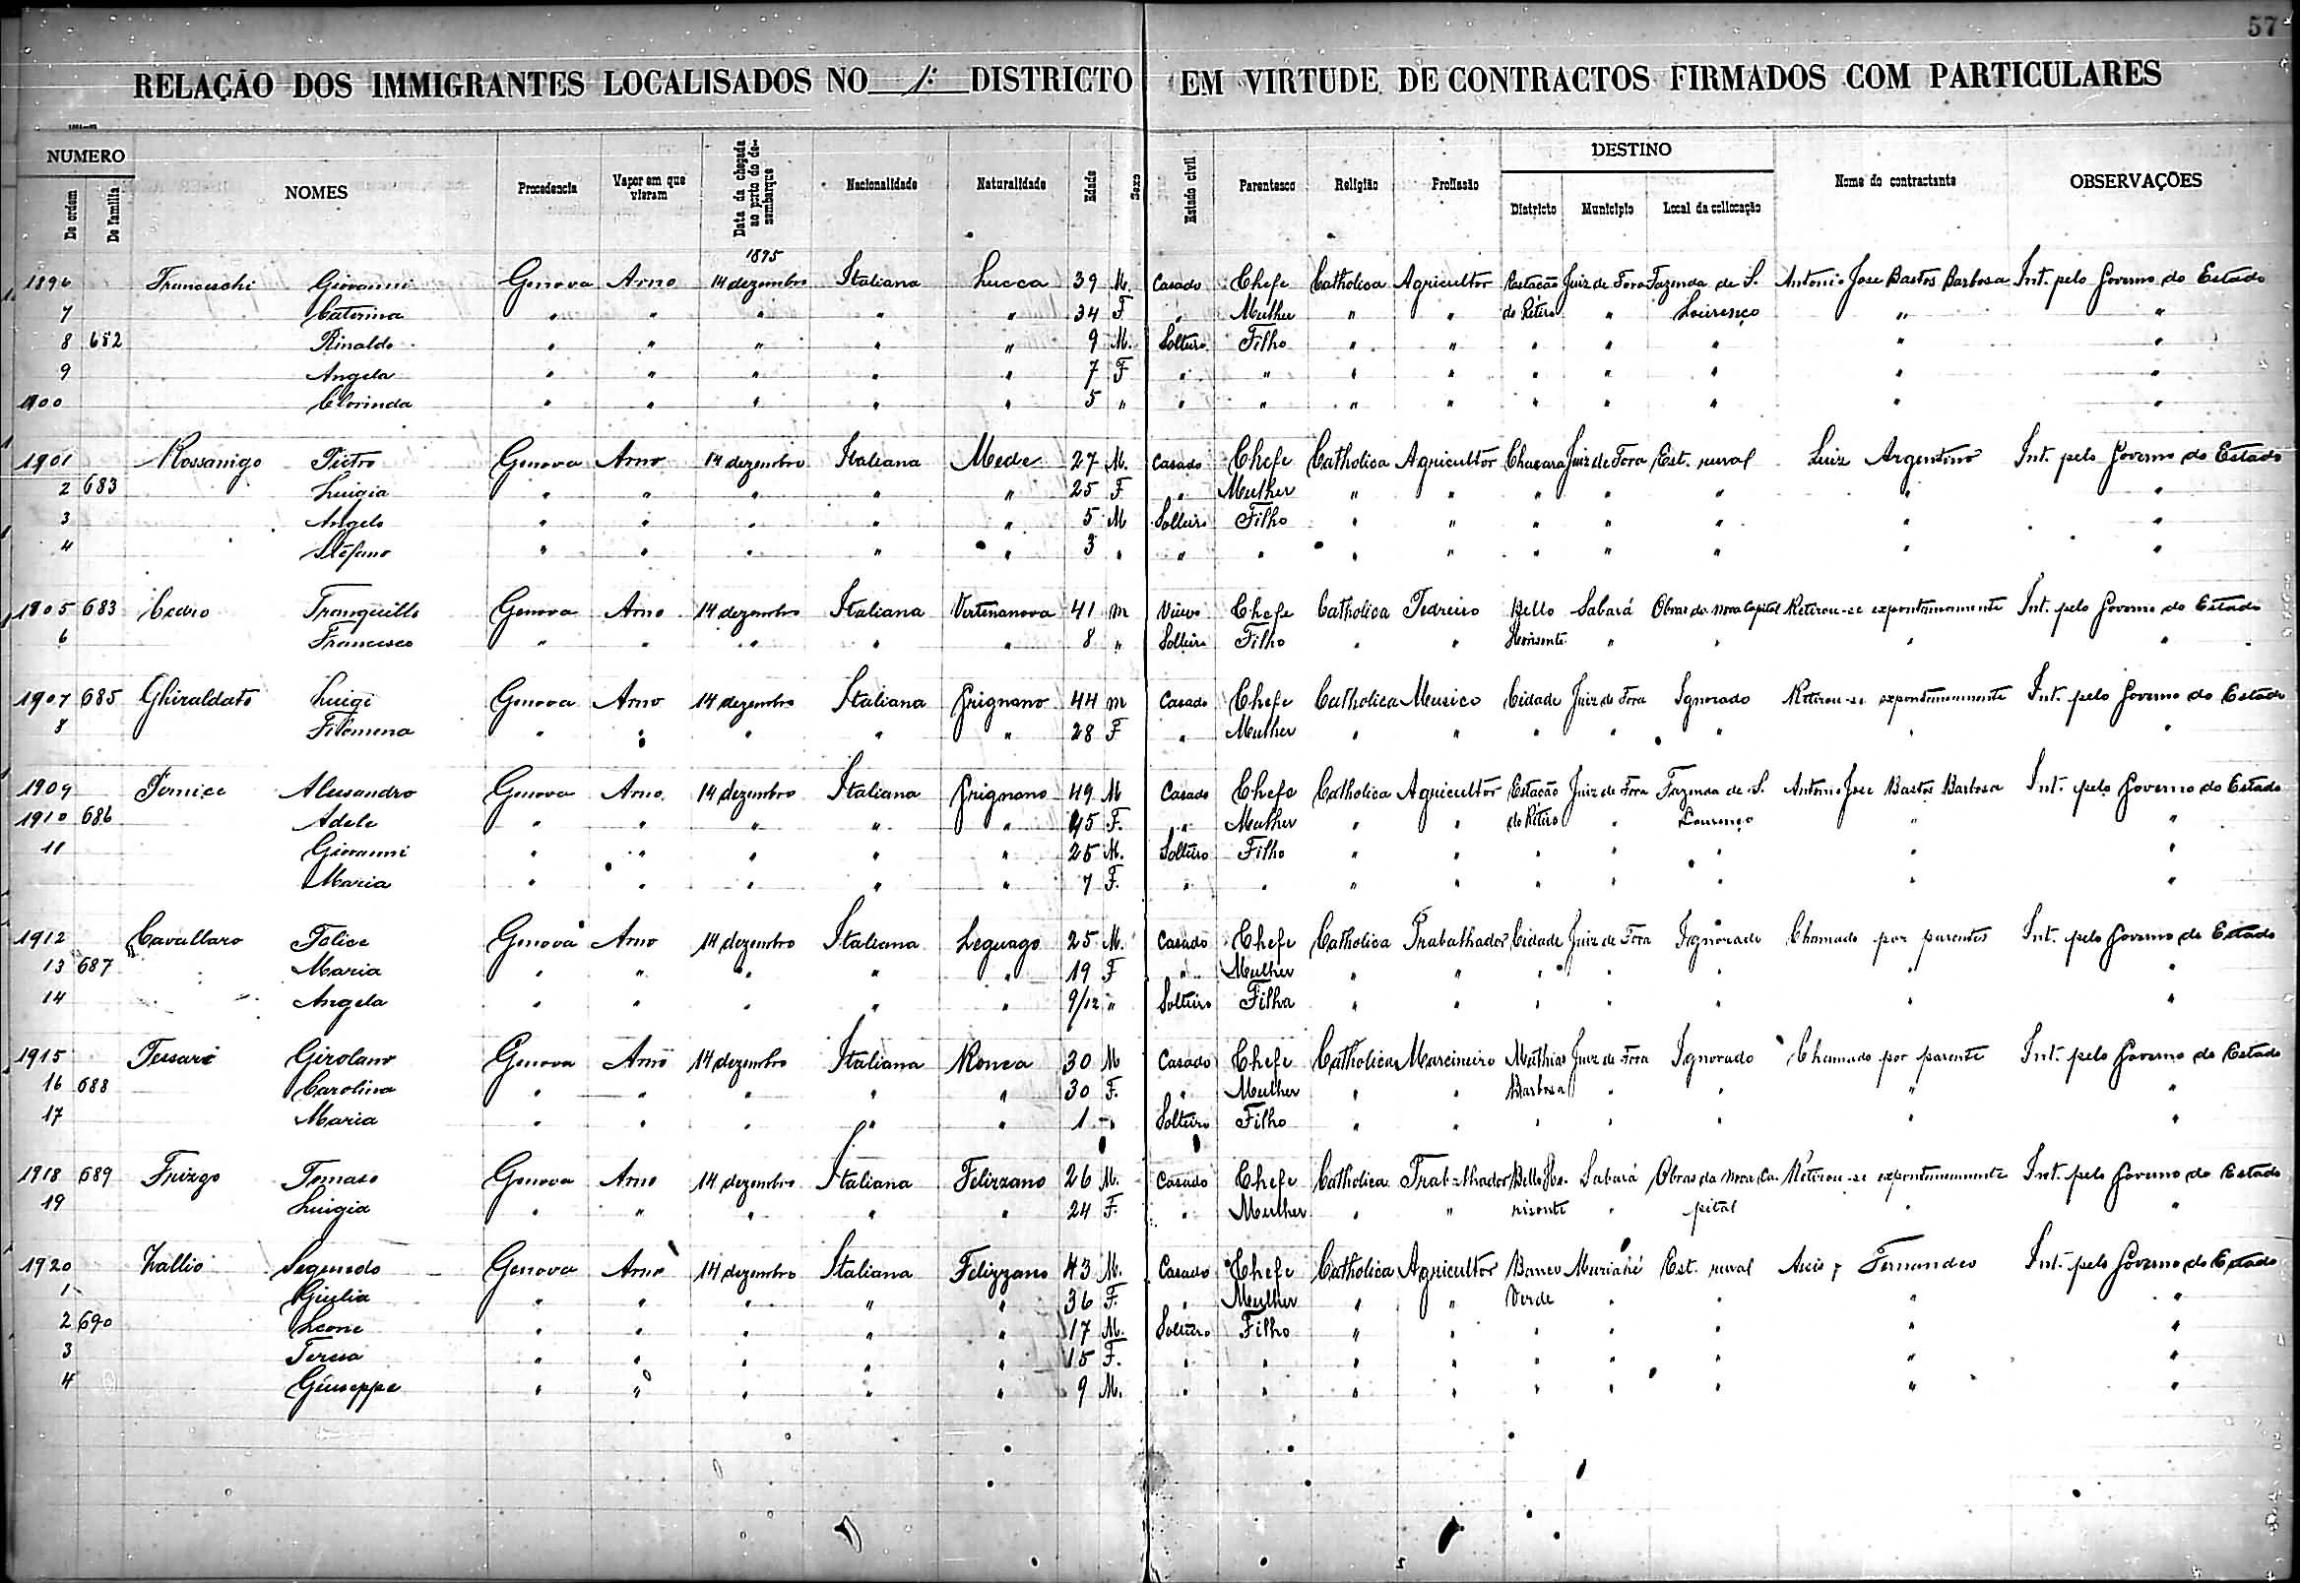 57
RELAÇÃO DOS IMMIGRANTES LOCALISADOS NO 1º DISTRICTO EM VIRTUDE DE CONTRACTOS FIRMADOS COM PARTICULARES
NUMERO DESTINO
De ordem De familia NOMES Procedencia Vapor em que vieram Data da chegada ao porto do desembarque Nacionalidade Naturalidade Edade Sexo Estado civil Parentesco Religião Profissão Districto Municipio Local da collocação Nome do contractante OBSERVAÇÕES
1895
1896 Franceschi Giovanni Genova Arno 14 dezembro Italiana Lucca 39 M. Casado Chefe Catholica Agricultor Estação Juiz de Fora Fazenda de S. Antonio Jose Bastos Barbosa Int. pelo Governo do Estado
7 Caterina " " " " " 34 F " Mulher " " do Retiro " Lourenço " "
8 682 Rinaldo " " " " " 9 M. Solteiro Filho " " " " " " "
9 Angela " " " " " 7 F " " " " " " " " "
1900 Clorinda " " " " " 5 " " " " " " " " " "
1901 Rossanigo Pietro Genova Arno 14 dezembro Italiana Mede 27 M. Casado Chefe Catholica Agricultor Chacara Juiz de Fora Est. rural Luiz Argentino Int. pelo Governo do Estado
2 683 Luigia " " " " " 25 F " Mulher " " " " " " "
3 Angelo " " " " " 5 M Solteiro Filho " " " " " " "
4 Stefano " " " " " 3 " " " " " " " " " "
1905 683 Cedro Tranquillo Genova Arno 14 dezembro Italiana Vertenanova 41 m Viuvo Chefe Catholica Pedreiro Bello Sabará Obras da nova Capital Retirou-se expontaneamente Int. pelo Governo do Estado
6 Francesco " " " " " 8 " Solteiro Filho " " Horisonte " " " "
1907 685 Ghiraldato Luigi Genova Arno 14 dezembro Italiana Grignano 44 m Casado Chefe Catholica Musico Cidade Juiz de Fora Ignorado Retirou-se expontaneamente Int. pelo Governo do Estado
8 Filomena " " " " " 28 F " Mulher " " " " " " "
1909 Pernice Alessandro Genova Arno 14 dezembro Italiana Grignano 49 M Casado Chefe Catholica Agricultor Estação Juiz de Fora Fazenda de S. Antonio Jose Bastos Barbosa Int. pelo Governo do Estado
1910 686 Adele " " " " " 45 F. " Mulher " " do Retiro " Lourenço " "
11 Giovanni " " " " " 25 M. Solteiro Filho " " " " " " "
Maria " " " " " 7 F. " " " " " " " " "
1912 Cavallaro Felice Genova Arno 14 dezembro Italiana Legnago 25 M. Casado Chefe Catholica Trabalhador Cidade Juiz de Fora Ignorado Chamado por parentes Int. pelo Governo do Estado
13 687 Maria " " " " " 19 F " Mulher " " " " " " "
14 Angela " " " " " 9/12 " Solteiro Filha " " " " " " "
1915 Tessari Girolamo Genova Arno 14 dezembro Italiana Ronca 30 M Casado Chefe Catholica Marcineiro Mathias Juiz de Fora Ignorado Chamado por parente Int. pelo Governo do Estado
16 688 Carolina " " " " " 30 F. " Mulher " " Barbosa " " " "
17 Maria " " " " " 1 " Solteiro Filho " " " " " " "
1918 689 Tomaso Genova Arno 14 dezembro Italiana Felizzano 26 M. Casado Chefe Catholica Trabalhador Bello Ho- Sabará Obras da nova Ca- Retirou-se expontaneamente Int. pelo Governo do Estado
19 Luigia " " " " " 24 F. " Mulher " " risonte " pital " "
1920 Zallio Segundo Genova Arno 14 dezembro Italiana Felizzano 43 M. Casado Chefe Catholica Agricultor Banco Muriahé Est. rural Fernandes Int. pelo Governo do Estado
1 Giulia " " " " " 36 F. " Mulher " " Verde " " " "
2 690 Leone " " " " " 17 M. Solteiro Filho " " " " " " "
3 Teresa " " " " " 15 F. " " " " " " " " "
4 Giuseppe " " " " " 9 M. " " " " " " " " "